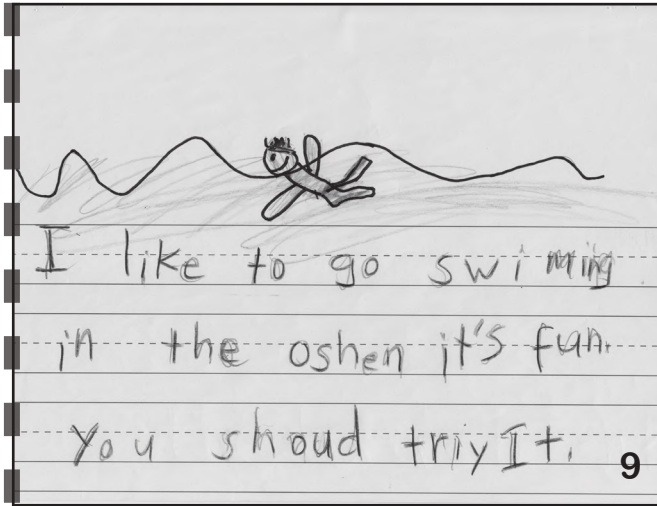 I like to go swiming
in the oshen it's fun.
You shoud triy It.
9